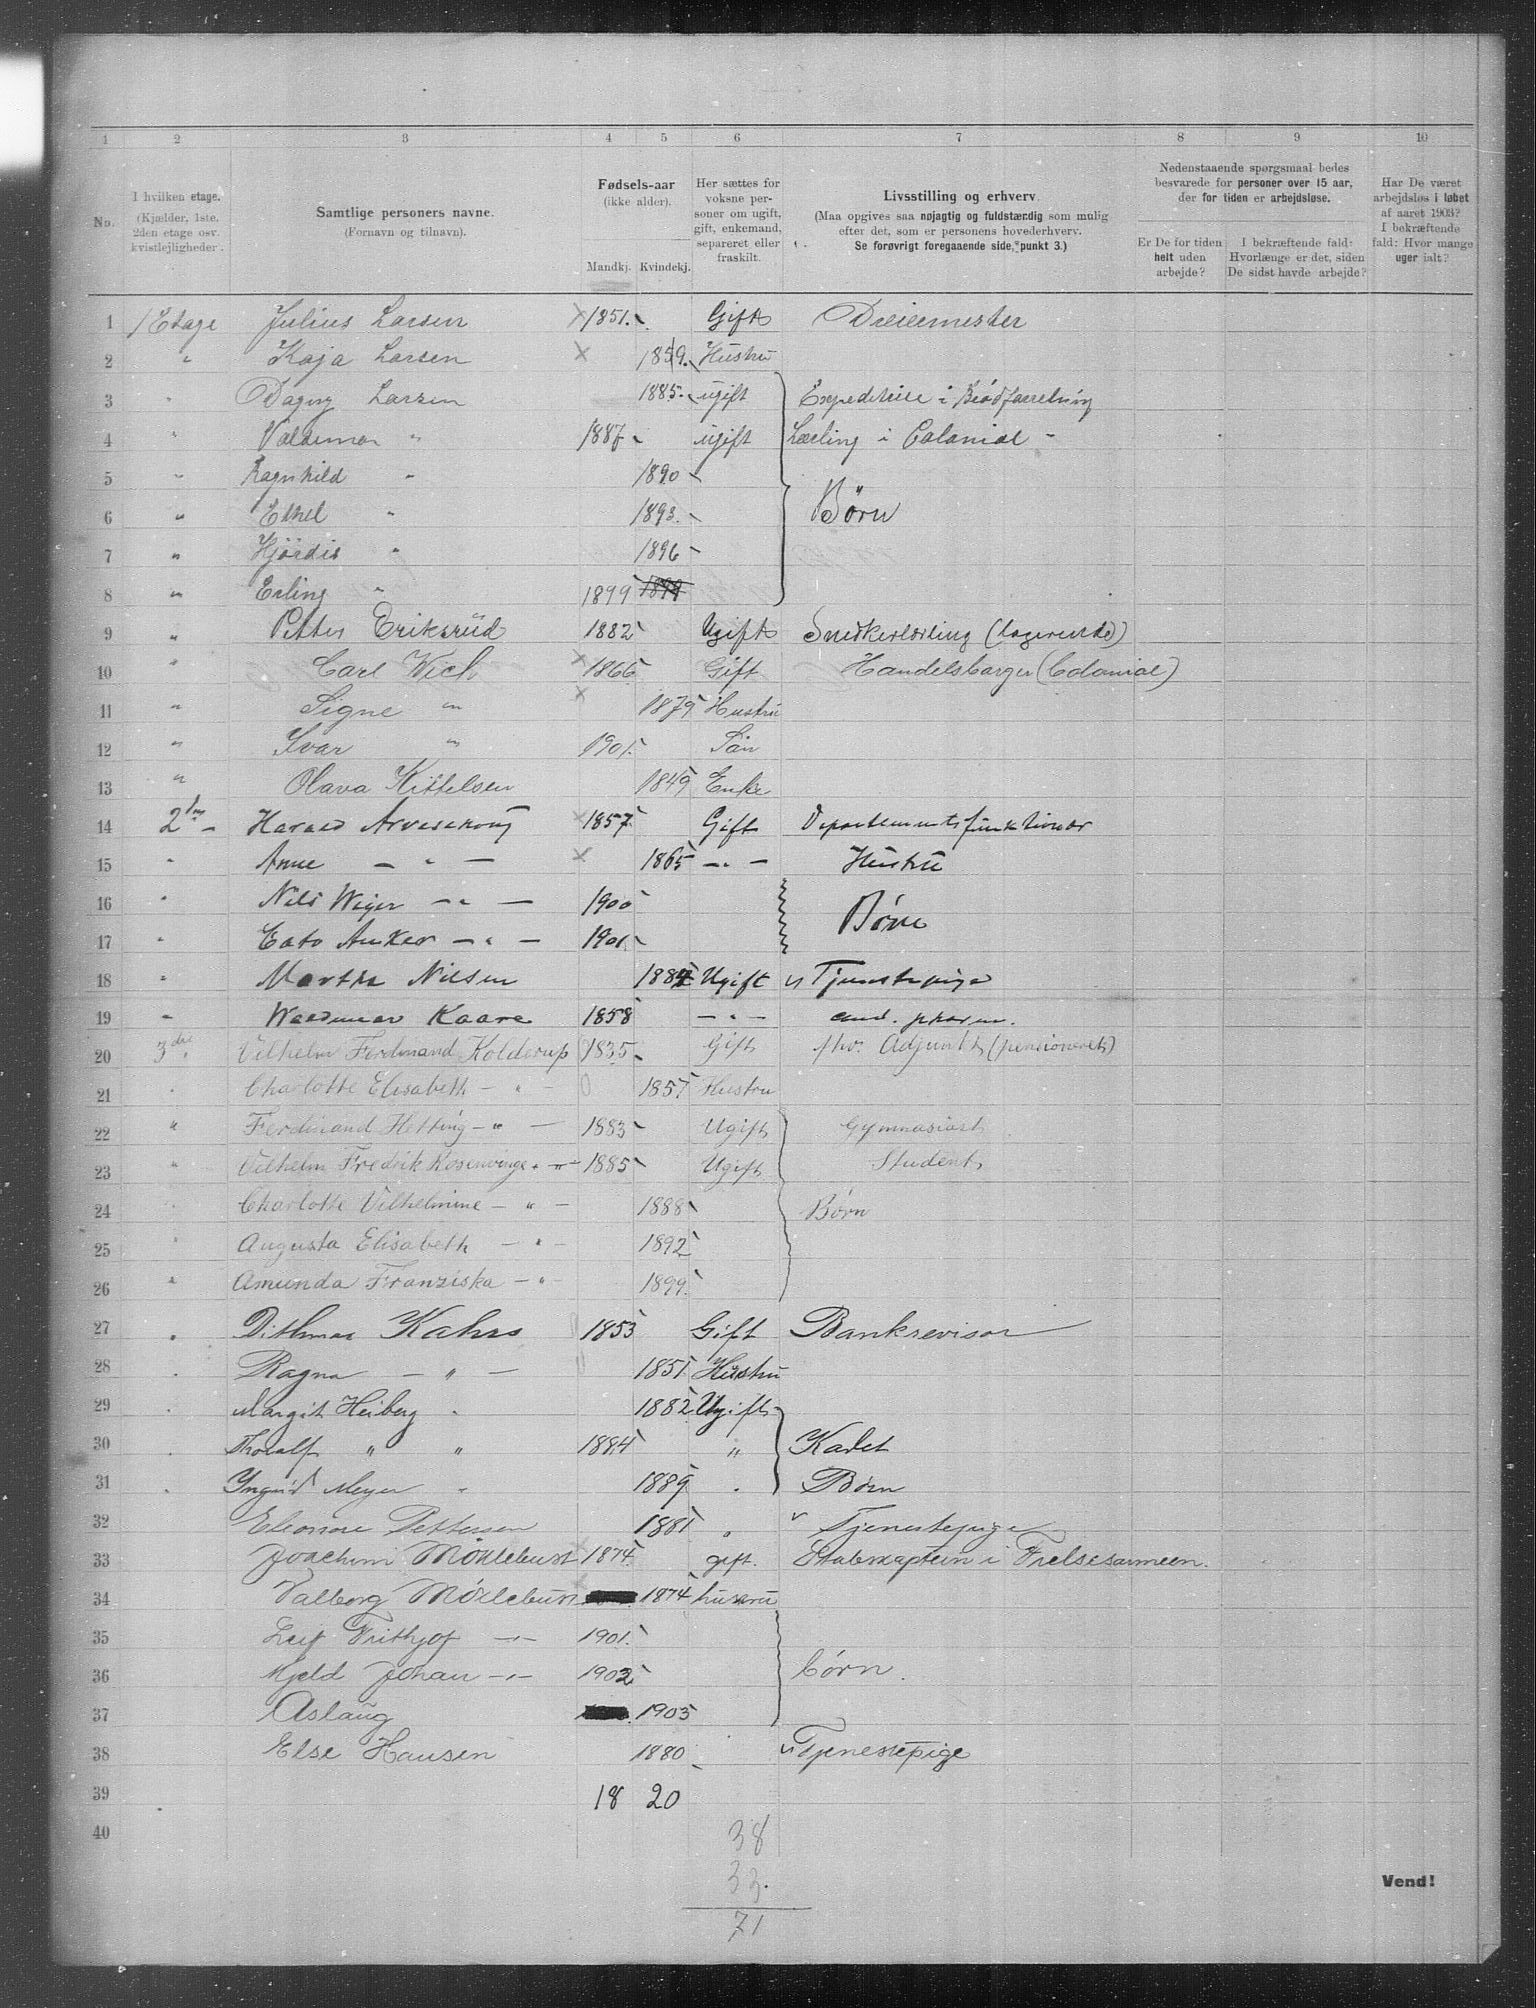 1 2 3 4 5 6 7 8 9 10
No.
I hvilken etage. (Kjælder, 1ste, 2den etage osv. kvistlejligheder.
Samtlige personers navne. (Fornavn og tilnavn).
Fødsels-aar (ikke alder).
Mandkj. Kvindekj.
Her sættes for voksne personer om ugift, gift, enkemand, separeret eller fraskilt.
Livsstilling og erhverv. (Maa opgives saa nøjagtig og fuldstændig som mulig efter det, som er personens hovederhverv. Se forøvrigt foregaaende side, punkt 3.)
Nedenstaaende spørgsmaal bedes besvarede for personer over 15 aar, der for tiden er arbejdsløse.
Er De for tiden helt uden arbejde?
I bekræftende fald: Hvorlænge er det, siden De sidst havde arbejde?
Har De været arbejdsløs i løbet af aaret 1903? I bekræftende fald: Hvor mange uger ialt?
1 1 Etage Julius Larsen × 1851. Gift Dreiemester
2 " Kaja Larsen × 1859. Hustru
3 " Dagny Larsen 1885. ugift Expeditrice i Brødforretning
4 " Valdemar " 1887 ugift Lærling i Colonial -
5 " Ragnhild " 1890
6 " Ethel " 1893. Børn
7 " Hjørdis " 1896
8 " Erling " 1899 1899
9 " Petter Eriksrud 1882 Ugift Snedkerlærling (logerende)
10 " Carl Wich × 1866 Gift Handelsborger (Colonial)
11 " Signe " × 1879 Hustru
12 " Ivar " 1901. Søn
13 " Olava Kittelsen 1849 Enke
14 2 Harald Arveschoug × 1857. Gift Departementsfunktionær
15 " Anne — " — × 1865 — " — Hustru
16 " Nils Weyer — " — 1900 Børn
17 " Cato Anker — " — 1901.
18 " Martha Nilsen 1884 Ugift Tjenestepige
19 " Waldemar Kaare 1858 — " — cand. pharm.
20 3die Vilhelm Ferdinand Kolderup 1835 Gift fhv. Adjunkt (pensioneret)
21 " Charlotte Elisabeth — " — 1857 Hustru
22 " Ferdinand Hetting — " — 1883 Ugift Gymnasiast
23 " Vilhelm Fredrik Rosenvinge — " — 1885 Ugift Student
24 " Charlotte Vilhelmine — " — 1888 Børn
25 " Augusta Elisabeth — " — 1892
26 " Amunda Franziska — " — 1899.
27 " Dithmar Kahrs 1853 Gift Bankrevisor
28 " Ragna — " — 1851 Hustru
29 " Margit Heiberg " 1882 Ugift
30 " Thoralf " " 1884 " Kadet
31 " Yngrid Meyer " 1889 " Børn
32 Eleonore Pettersen 1881 " Tjenestepige
33 Joachim Møklebust × 1874. gift. Stabskaptein i Frelsesarmeen.
34 Valborg Møklebust × 1874 hustru
35 Leif Frithjof — " — 1901.
36 Kjeld Johan — " — 1902 børn.
37 Aslaug 1903
38 Else Hansen 1880 Tjenestepige
39 18 20
40 38
33.
71
Vend!